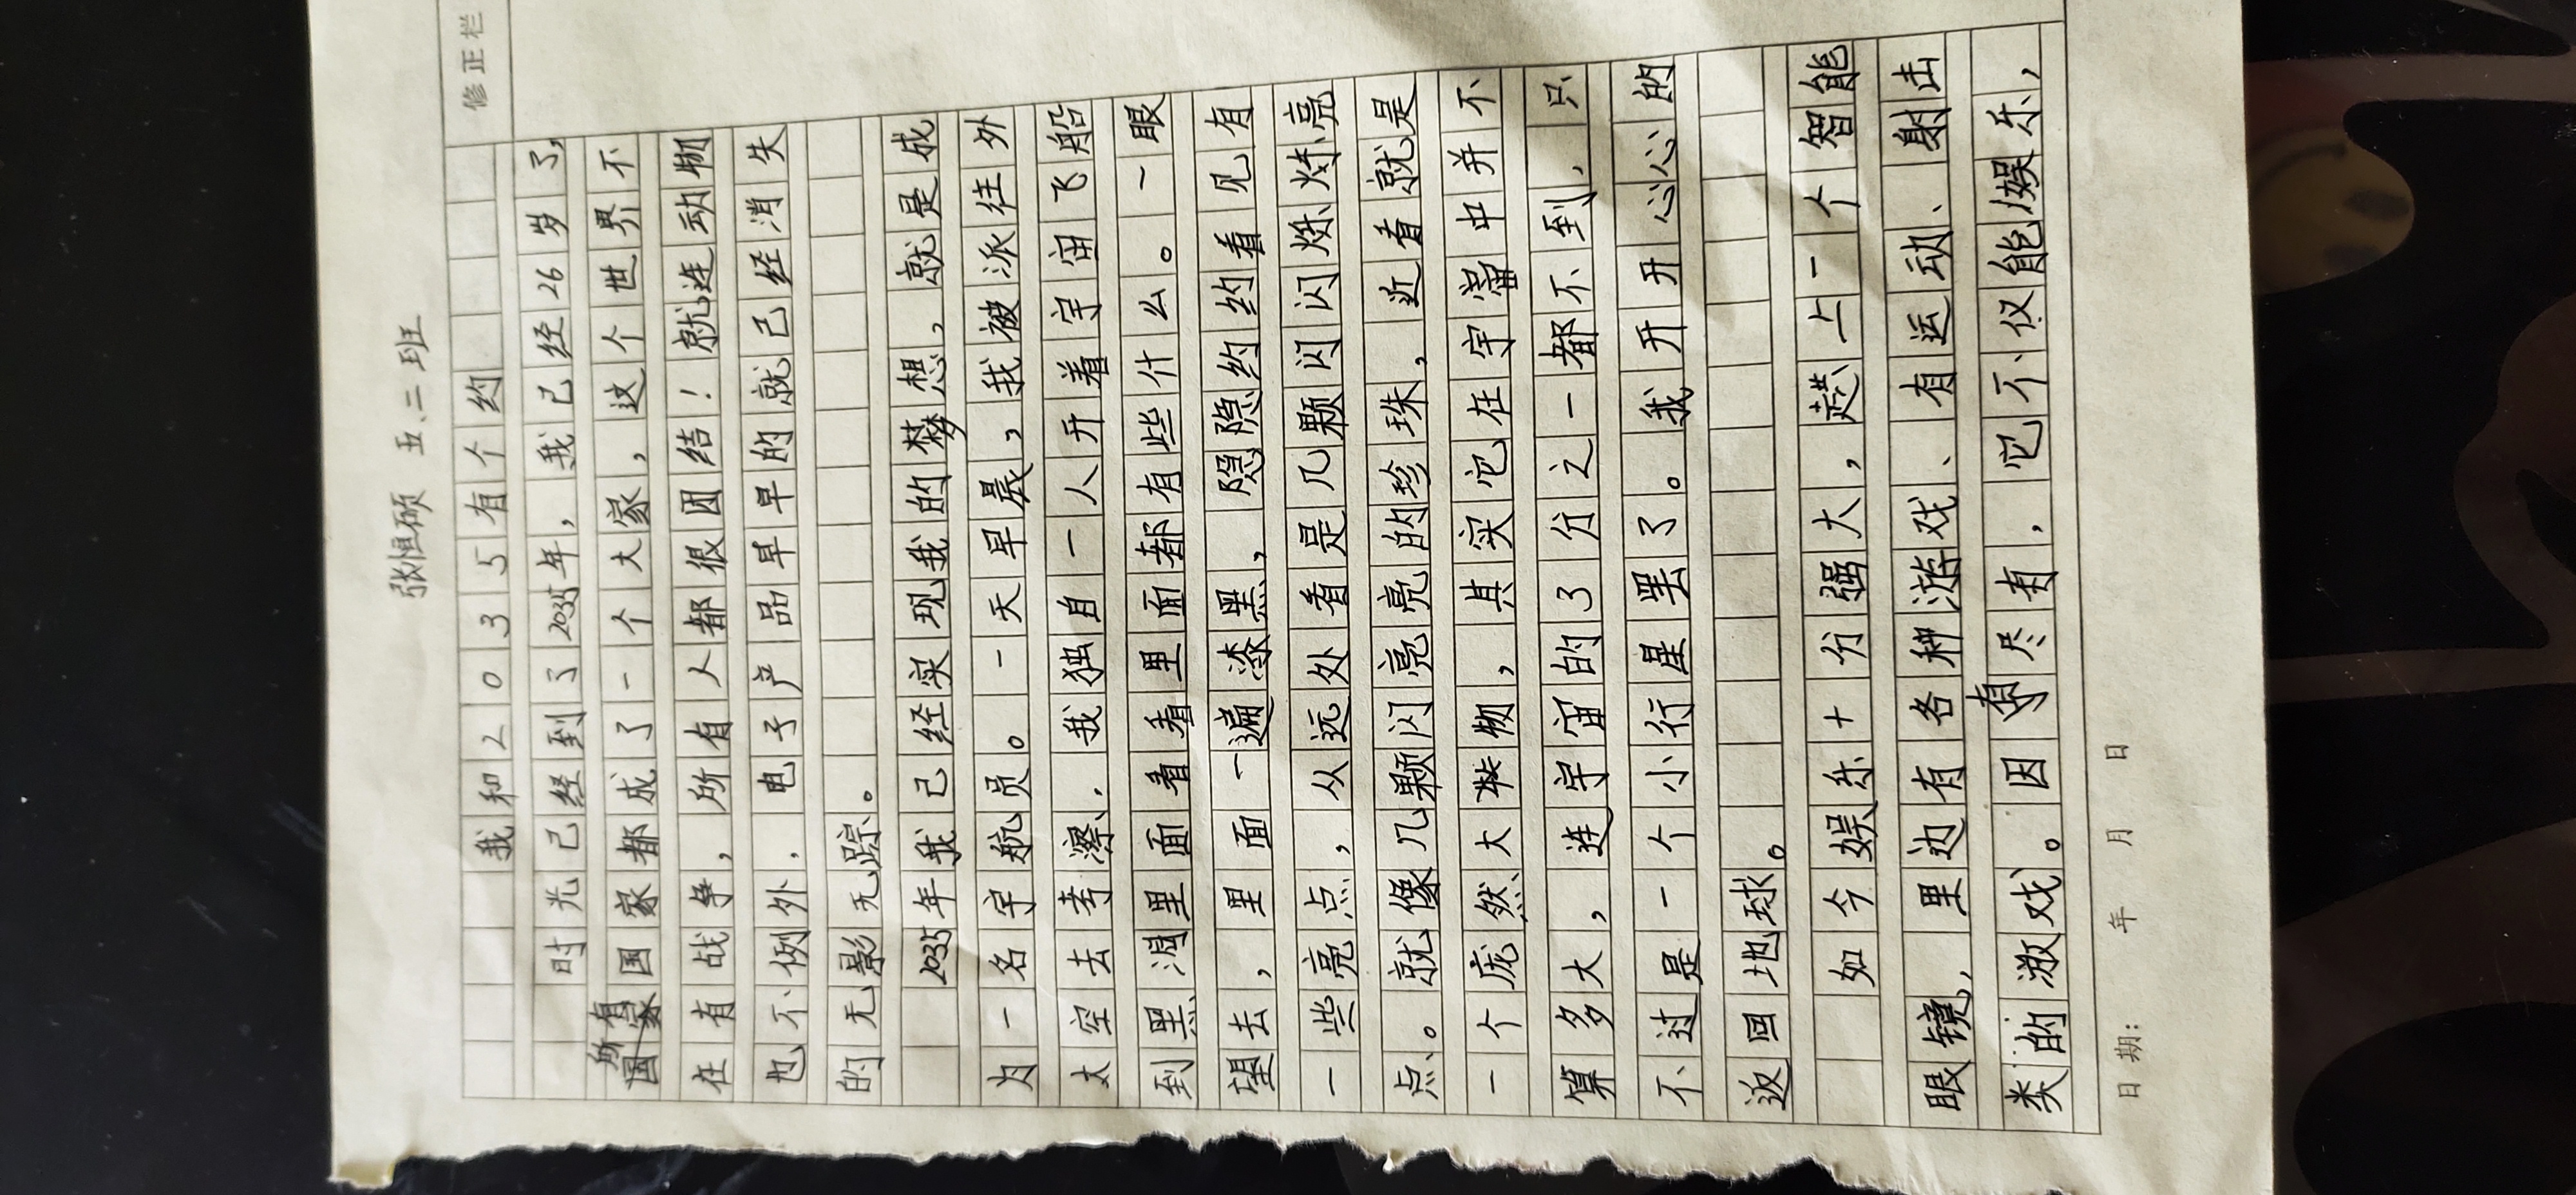 张恒硕 五、二班
修正栏
我和2035有个约
时光已经到了2035年，我已经26岁了，
所有
国家国家都成了一个大家，这个世界不
在有战争，所有人都很团结！就连动物
也不例外，电子产品早早的就已经消失
的无影无踪。
2035年我已经实现我的梦想，就是成
为一名宇航员。一天早晨，我被派往外
太空去考察，我独自一人开着宇宙飞船
到黑洞里面看看里面都有些什么。一眼
望去，里面一遍漆黑，隐隐约约看见有
一些亮点，从远处看是几颗闪闪烁烁亮
点。就像几颗闪亮亮的珍珠，近看就是
一个庞然大物，其实它在宇宙中并不
算多大，连宇宙的3分之一都不到，只
不过是一个小行星罢了。我开开心心的
返回地球。
如今娱乐十分强大，戴上一个智能
眼镜，里边有各种游戏、有运动、射击
类的游戏。因有尽有，它不仅能娱乐，
日期： 年 月 日